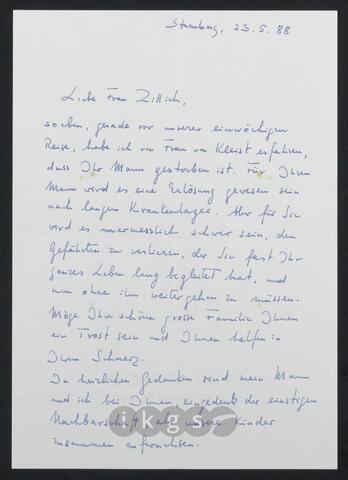 Starnberg, 23.5.88
Liebe Frau Zillich,
soeben, gerade vor unserer einwöchigen
Reise, habe ich von Frau von Kleist erfahren,
dass Ihr Mann gestorben ist. Für Ihren
Mann wird es eine Erlösung gewesen sein
nach langem Krankenlager. Aber für Sie
wird es unermesslich schwer sein, den
Gefährten zu verlieren, der Sie fast Ihr
ganzes Leben lang begleitet hat, und
nun ohne ihn weitergehen zu müssen.
Möge Ihre schöne grosse Familie Ihnen
ein Trost sein und Ihnen helfen in
Ihrem Schmerz.
In herzlichen Gedanken sind mein Mann
und ich bei Ihnen, eingedenk der einstigen
Nachbarschaft als unsere Kinder
zusammen aufwuchsen.
ikgs